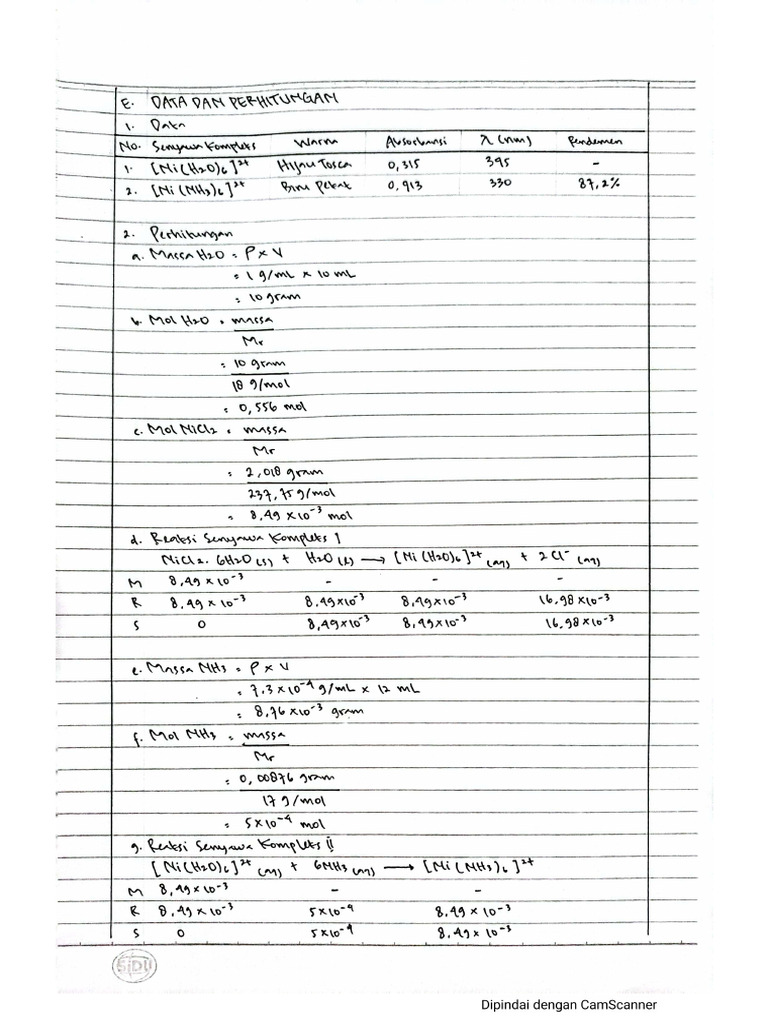 E. DATA DAN PERHITUNGAN
1. Data
No. Senyawa Kompleks Warna Absorbansi λ (nm) Rendemen
1. [Ni(H2O)6]2+ Hijau Tosca 0,315 395 -
2. [Ni(NH3)6]2+ Biru Pekat 0,913 330 87,2%
2. Perhitungan
a. Massa H2O = ρ x V
= 1 g/mL x 10 mL
= 10 gram
b. Mol H2O = massa
Mr
= 10 gram
18 g/mol
= 0,556 mol
c. Mol NiCl2 = massa
Mr
= 2,018 gram
237,75 g/mol
= 8,49 x 10-3 mol
d. Reaksi Senyawa Kompleks I
NiCl2. 6H2O (s) + H2O (l) → [Ni(H2O)6]2+ (aq) + 2Cl- (aq)
M 8,49 x 10-3 - - -
R 8,49 x 10-3 8,49x10-3 8,49x10-3 16,98x10-3
S 0 8,49x10-3 8,49x10-3 16,98x10-3
e. Massa NH3 = ρ x V
= 7,3x10-4 g/mL x 12 mL
= 8,76 x10-3 gram
f. Mol NH3 = massa
Mr
= 0,00876 gram
17 g/mol
= 5x10-4 mol
g. Reaksi Senyawa Kompleks II
[Ni(H2O)6]2+ (aq) + 6NH3 (aq) → [Ni(NH3)6]2+
M 8,49 x10-3 - -
R 8,49 x 10-3 5x10-4 8,49 x 10-3
S 0 5x10-4 8,49x 10-3
SiDU
Dipindai dengan CamScanner